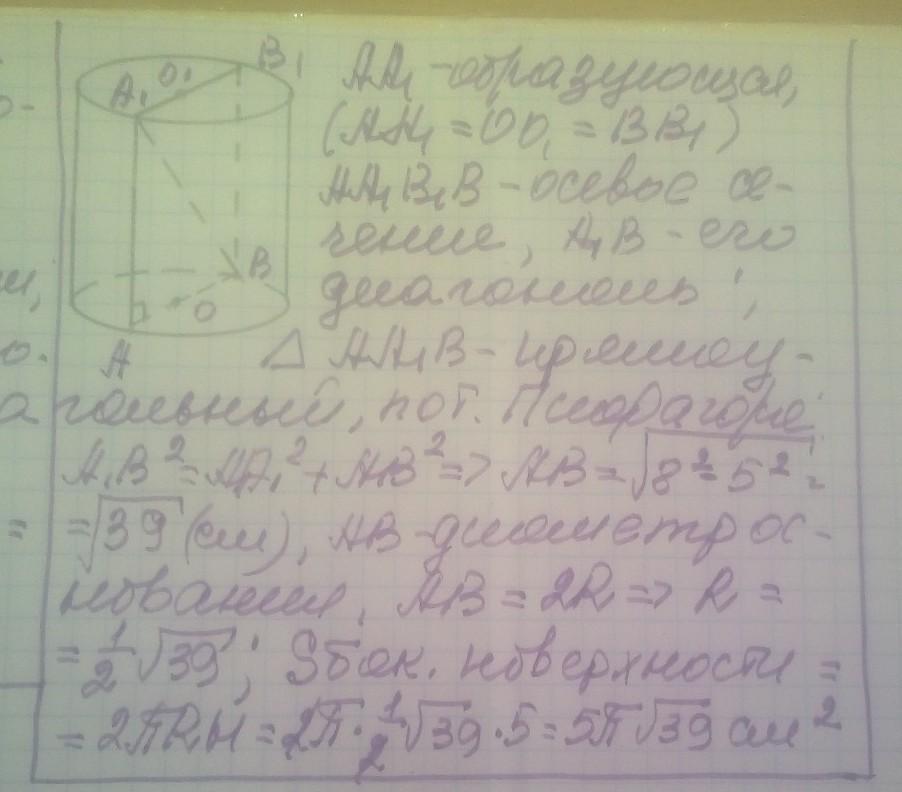 B₁
O₁
A₁
B
O
A
о-
м,
о.
а
=
AA₁ - образующая,
(AA₁ = OO₁ = BB₁)
AA₁B₁B - осевое се-
чение, A₁B - его
диагональ;
△ AA₁B - прямоу-
гольный, по т. Пифагора
A₁B² = AA₁² + AB² => AB = √8² - 5² =
= √39 (см), AB - диаметр ос-
нования, AB = 2R => R =
= 1/2 √39; Sбок. поверхности =
= 2πRH = 2π · 1/2 √39 · 5 = 5π √39 см²